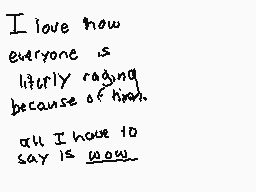 I love how
everyone is
literly raging
because of him.
all I have to
say is wow